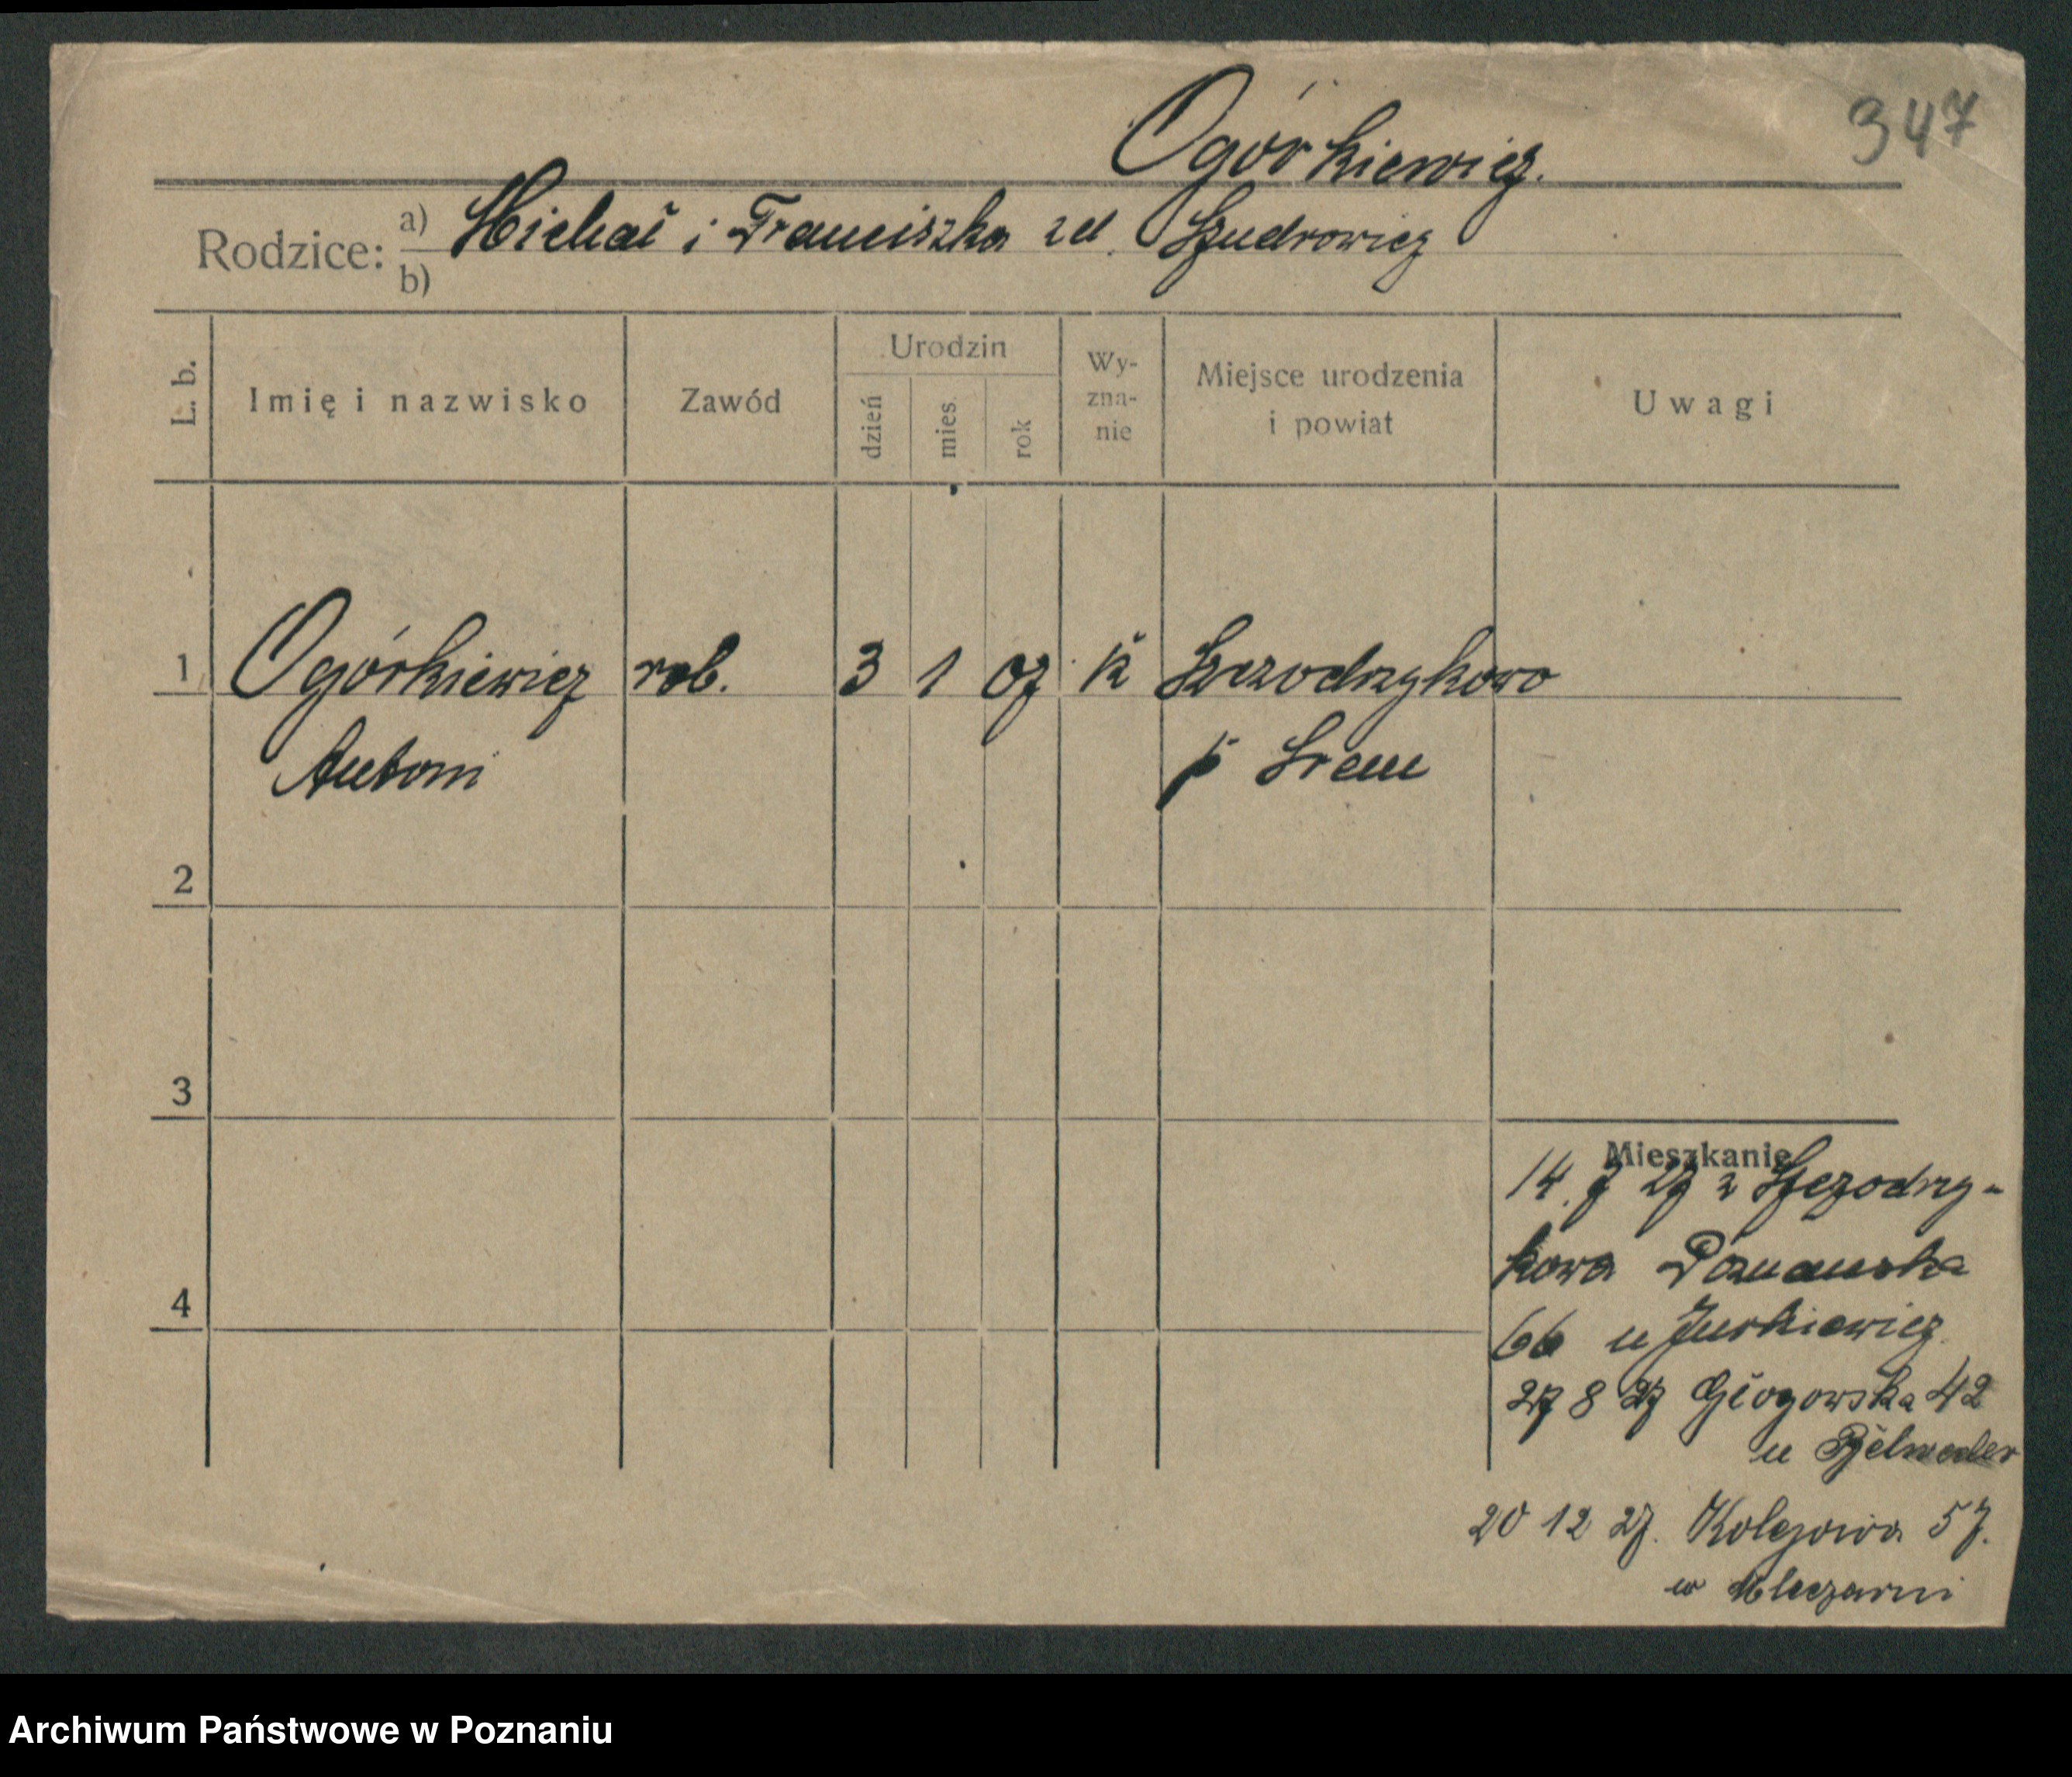 347
Ogórkiewicz.
Rodzice: a) Michał i Franciszka zd. Szudrowicz
b)
L. b. Imię i nazwisko Zawód Urodzin dzień mies. rok Wy-zna-nie Miejsce urodzenia i powiat Uwagi
1 Ogórkiewicz rob. 3 1 07 k Szczodrzykowo
Antoni p Srem
2
3
4
Mieszkanie
14. 7 27 z Szczodrzy-
kowa Poznańska
66 u Jurkiewicz
27 8 27 Głogowska 42
u Belweder
20 12 27. Kolejowa 57.
w Mleczarni
Archiwum Państwowe w Poznaniu